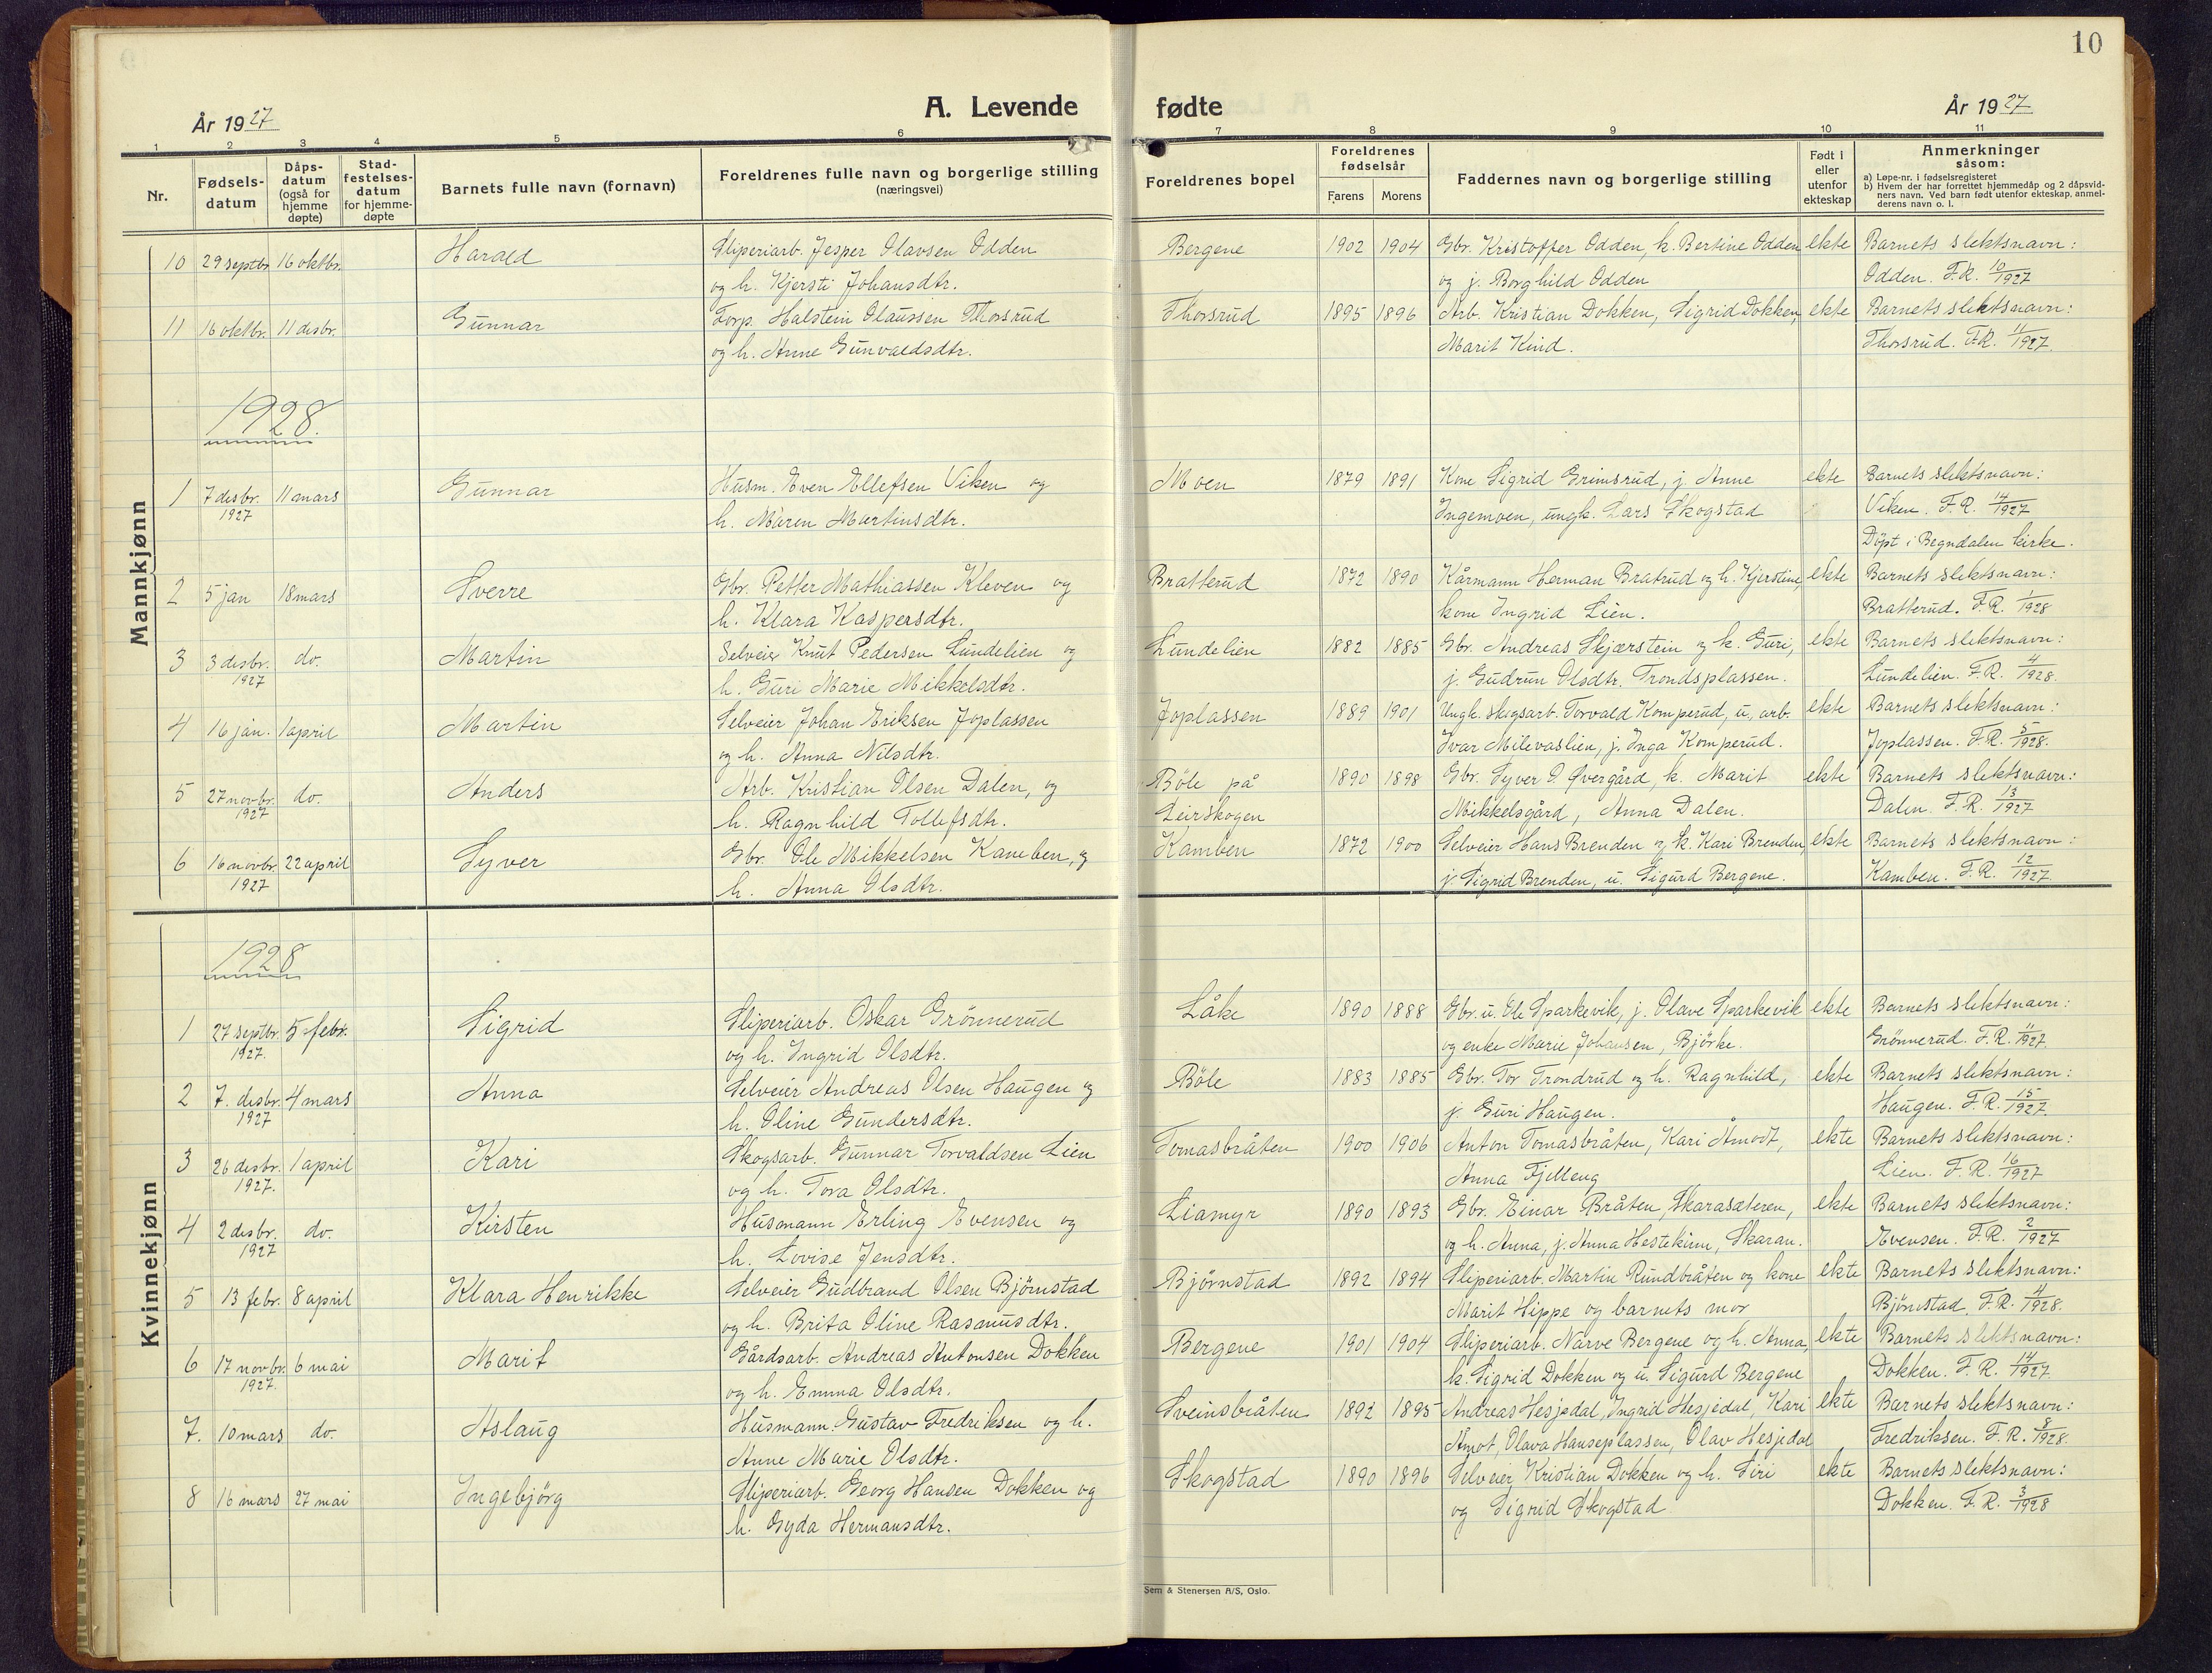 10
A. Levende fødte
År 1927
År 1927
1 2 3 4 5 6 7 8 9 10 11
Nr.
Fødsels-
datum
Dåps-
datum
(også for
hjemme
døpte)
Stad-
festelses-
datum
for hjemme-
døpte
Barnets fulle navn (fornavn)
Foreldrenes fulle navn og borgerlige stilling
(næringsvei)
Foreldrenes bopel
Foreldrenes
fødselsår
Farens Morens
Faddernes navn og borgerlige stilling
Født i
eller
utenfor
ekteskap
Anmerkninger
såsom:
a) Løpe-nr. i fødselsregisteret
b) Hvem der har forrettet hjemmedåp og 2 dåpsvid-
ners navn. Ved barn født utenfor ekteskap, anmel-
derens navn o. l.
Mannkjønn
10 29 septbr. 16 oktbr. Harald Sliperiarb. Jesper Olavsen Odden Bergene 1902 1904 Gbr. Kristoffer Odden, k. Bertine Odden ekte Barnets slektsnavn:
og h. Kjersti Johansdtr. og j. Borghild Odden Odden. F.R. 10/1927
11 16 oktbr. 11 desbr. Gunnar Forp. Halstein Olaussen Thorsrud Thorsrud 1895 1896 Arb. Kristian Dokken, Sigrid Dokken, ekte Barnets slektsnavn:
og h. Anne Gunvaldsdtr. Marit Kind. Thorsrud. F.R. 11/1927.
1928.
1 7 desbr. 11 mars Gunnar Husm. Even Ellefsen Viken og Moen 1879 1891 Kone Sigrid Grimsrud, j. Anne ekte Barnets slektsnavn:
1927 h. Maren Martinsdtr. Ingemoen, ungk. Lars Skogstad Viken. F.R. 14/1927
Döpt i Begndalen kirke.
2 5 jan 18 mars Sverre Gbr. Petter Mathiassen Kleven og Bratterud 1872 1890 Kårmann Herman Bratrud og h. Kjerstine, ekte Barnets slektsnavn:
h. Klara Kaspersdtr. kone Ingrid Lien. Bratterud. F.R. 1/1928
3 3 desbr. do. Martin Selveier Knut Pedersen Lundelien og Lundelien 1882 1885 Gbr. Andreas Skjærstein og k. Guri, ekte Barnets slektsnavn:
1927 h. Guri Marie Mikkelsdtr. j. Gudrun Olsdtr. Trondsplassen. Lundelien. F.R. 4/1928.
4 16 jan. 1 april Martin Selveier Johan Eriksen Joplassen Joplassen 1889 1901 Ungk. skogsarb. Torvald Komperud, u., arb. ekte Barnets slektsnavn:
og h. Anna Nilsdtr. Ivar Milevaslien, j. Inga Komperud. Joplassen. F.R. 5/1928.
5 27 novbr. do. Anders Arb. Kristian Olsen Dalen, og Böle på 1890 1898 Gbr. Syver O Øvergård, k. Marit ekte Barnets slektsnavn:
1927 h. Ragnhild Tollefsdtr. Leirskogen Mikkelsgård, Anna Dalen. Dalen. F.R. 13/1927
6 16 novbr. 22 april Syver Gbr. Ole Mikkelsen Kamben, og Kamben 1872 1900 Selveier Hans Brenden og k. Kari Brenden, ekte Barnets slektsnavn:
1927 h. Anna Olsdtr. j. Sigrid Brenden, u. Sigurd Bergene. Kamben. F.R. 12/1927
Kvinnekjønn
1928
1 27 septbr. 5 febr. Sigrid Sliperiarb. Oskar Grönnerud Låke 1890 1888 Gbr. u. Ole Sparkevik, j. Olave Sparkevik ekte Barnets slektsnavn:
1927. og h. Ingrid Olsdtr. og enke Marie Johansen, Björke. Grönnerud. F.R. 11/1927.
2 7. desbr. 4 mars Anna Selveier Andreas Olsen Haugen og Böle 1883 1885 Gbr. Tor Trondrud og h. Ragnhild, ekte Barnets slektsnavn:
1927 h. Oline Gundersdtr. j. Guri Haugen. Haugen. F.R. 15/1927
3 26 desbr. 1 april Kari Skogsarb. Gunnar Torvaldsen Lien Tomasbråten 1900 1906 Anton Tomasbråten, Kari Åmodt, ekte Barnets slektsnavn:
1927. og h. Tora Olsdtr. Anna Fjelleng Lien. F.R. 16/1927
4 2 desbr. do. Kirsten Husmann Erling Evensen og Liamyr 1890 1893 Gbr. Einar Bråten, Skarasæteren, ekte Barnets slektsnavn:
1927 h. Lovise Jensdtr. og h. Anna, j. Anna Hestekinn, Skaran. Evensen. F.R. 2/1927
5 13 febr. 8 april Klara Henrikke Selveier Gudbrand Olsen Björnstad Bjørnstad 1892 1894 Sliperiarb. Martin Rundbråten og kone ekte Barnets slektsnavn:
og h. Brita Oline Rasmusdtr. Marit Hippe og barnets mor Björnstad. F.R. 4/1928.
6 17 novbr. 6 mai Marit Gårdsarb. Andreas Antonsen Dokken Bergene 1901 1904 Sliperiarb. Narve Bergene og h. Anna, ekte Barnets slektsnavn:
1927. og h. Emma Olsdtr. k. Sigrid Dokken og u. Sigurd Bergene Dokken. F.R. 14/1927
7. 10 mars do. Aslaug Husmann Gustav Fredriksen og h. Sveinsbråten 1892 1895 Andreas Hesjedal, Ingrid Hesjedal, Kari ekte Barnets slektsnavn:
Anne Marie Olsdtr. Åmot, Olava Hanseplassen, Olav Hesjedal Fredriksen. F.R. 8/1928.
8 16 mars 27 mai Ingebjörg Sliperiarb. Georg Hansen Dokken og Skogstad 1890 1896 Selveier Kristian Dokken og h. Siri ekte Barnets slektsnavn:
h. Gyda Hermansdtr. og Sigrid Skogstad Dokken. F.R. 3/1928
Sem & Stenersen A/S, Oslo.